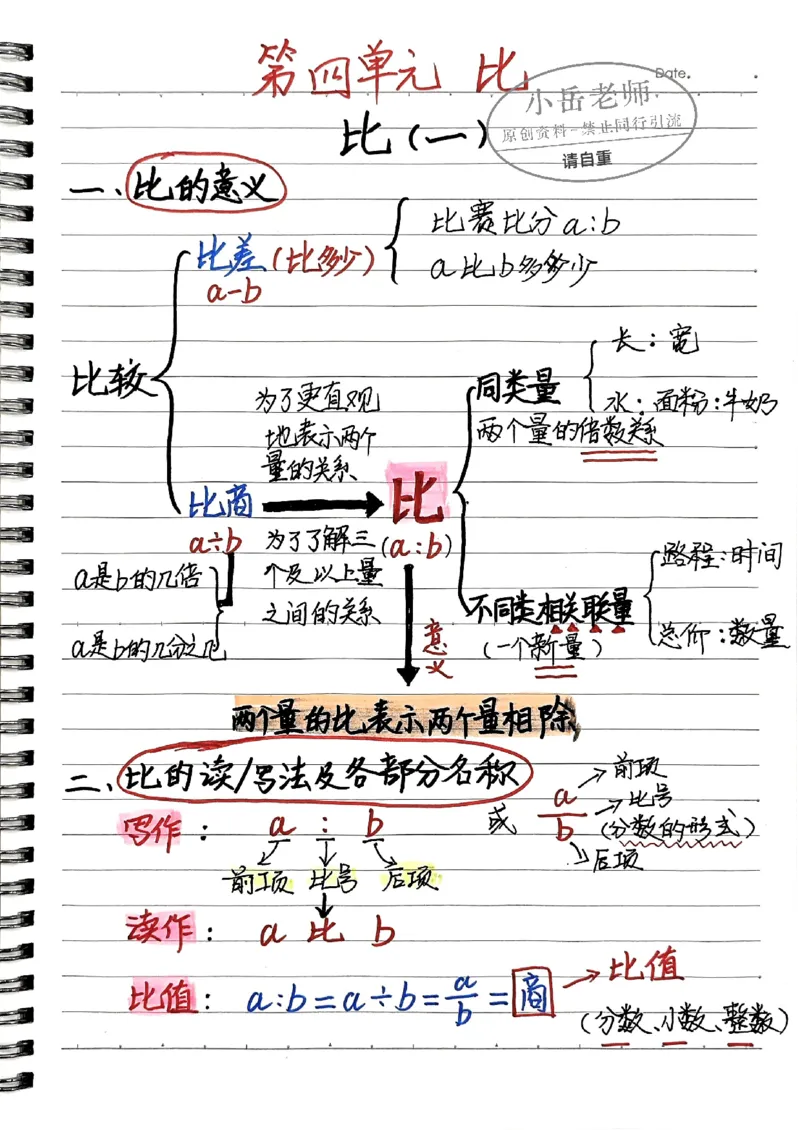 第四单元 比
Date.
小岳老师
原创资料-禁止同行引流
请自重
比(一)
一、比的意义
比赛比分 a:b
比差(比多少)
a比b多多少
a-b
长:宽
比较
同类量
为了更直观
水:面粉:牛奶
两个量的倍数关系
地表示两个
量的关系
比商
比
a÷b
为了了解三
(a:b)
路程:时间
a是b的几倍
个及以上量
之间的关系
不同类相关联量
a是b的几分之几
意义
(一个新量)
总价:数量
两个量的比表示两个量相除
二、比的读/写法及各部分名称
前项
写作: a : b 或 a/b
比号
(分数的形式)
后项
前项 比号 后项
读作: a 比 b
比值
比值: a:b=a÷b=a/b=商
(分数、小数、整数)